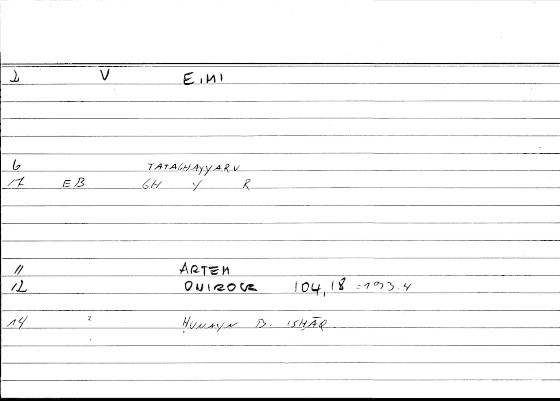 2 V EINI
6 TATAGHAYYARU
17 EB GH Y R
11 ARTEM
12 ONIROCR 104,18 = 193.4
14 ? ḤUNAYN B. ISḤĀQ